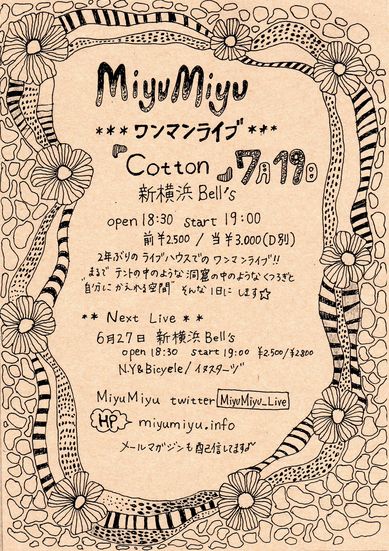 MiyuMiyu
*** ワンマンライブ ***
『Cotton』7月19日
新横浜 Bell's
open 18:30 start 19:00
前¥2.500 / 当¥3.000(D別)
2年ぶりのライブハウスでのワンマンライブ!!
まるでテントの中のような洞窟の中のようなくつろぎと
"自分にかえれる空間" そんな1日にします☆
** Next Live **
6月27日 新横浜 Bell's
open 18:30 start 19:00 ¥2500/¥2800
N.Y&Bicycle/イヌスターヅ
MiyuMiyu twitter MiyuMiyu_Live
HP miyumiyu.info
メールマガジンも配信してます♪